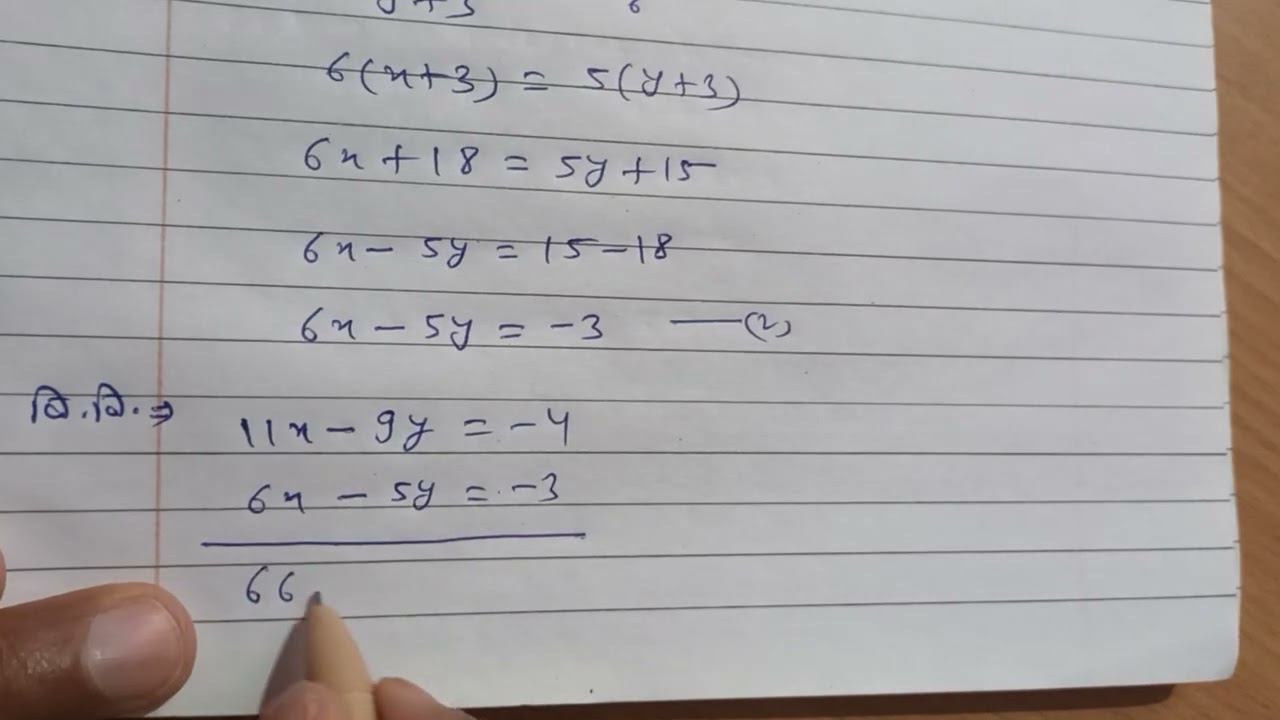 y+3 6
6(x+3) = 5(y+3)
6x+18 = 5y+15
6x - 5y = 15-18
6x - 5y = -3 —(2)
वि.वि.⇒ 11x - 9y = -4
6x - 5y = -3
66